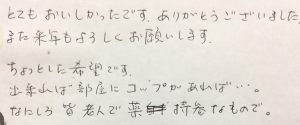 とてもおいしかったです。ありがとうございました。
また来年もよろしくお願いします。
ちょっとした希望です。
出来れば部屋にコップがあれば…。
なにしろ皆老人で薬持参なもので。